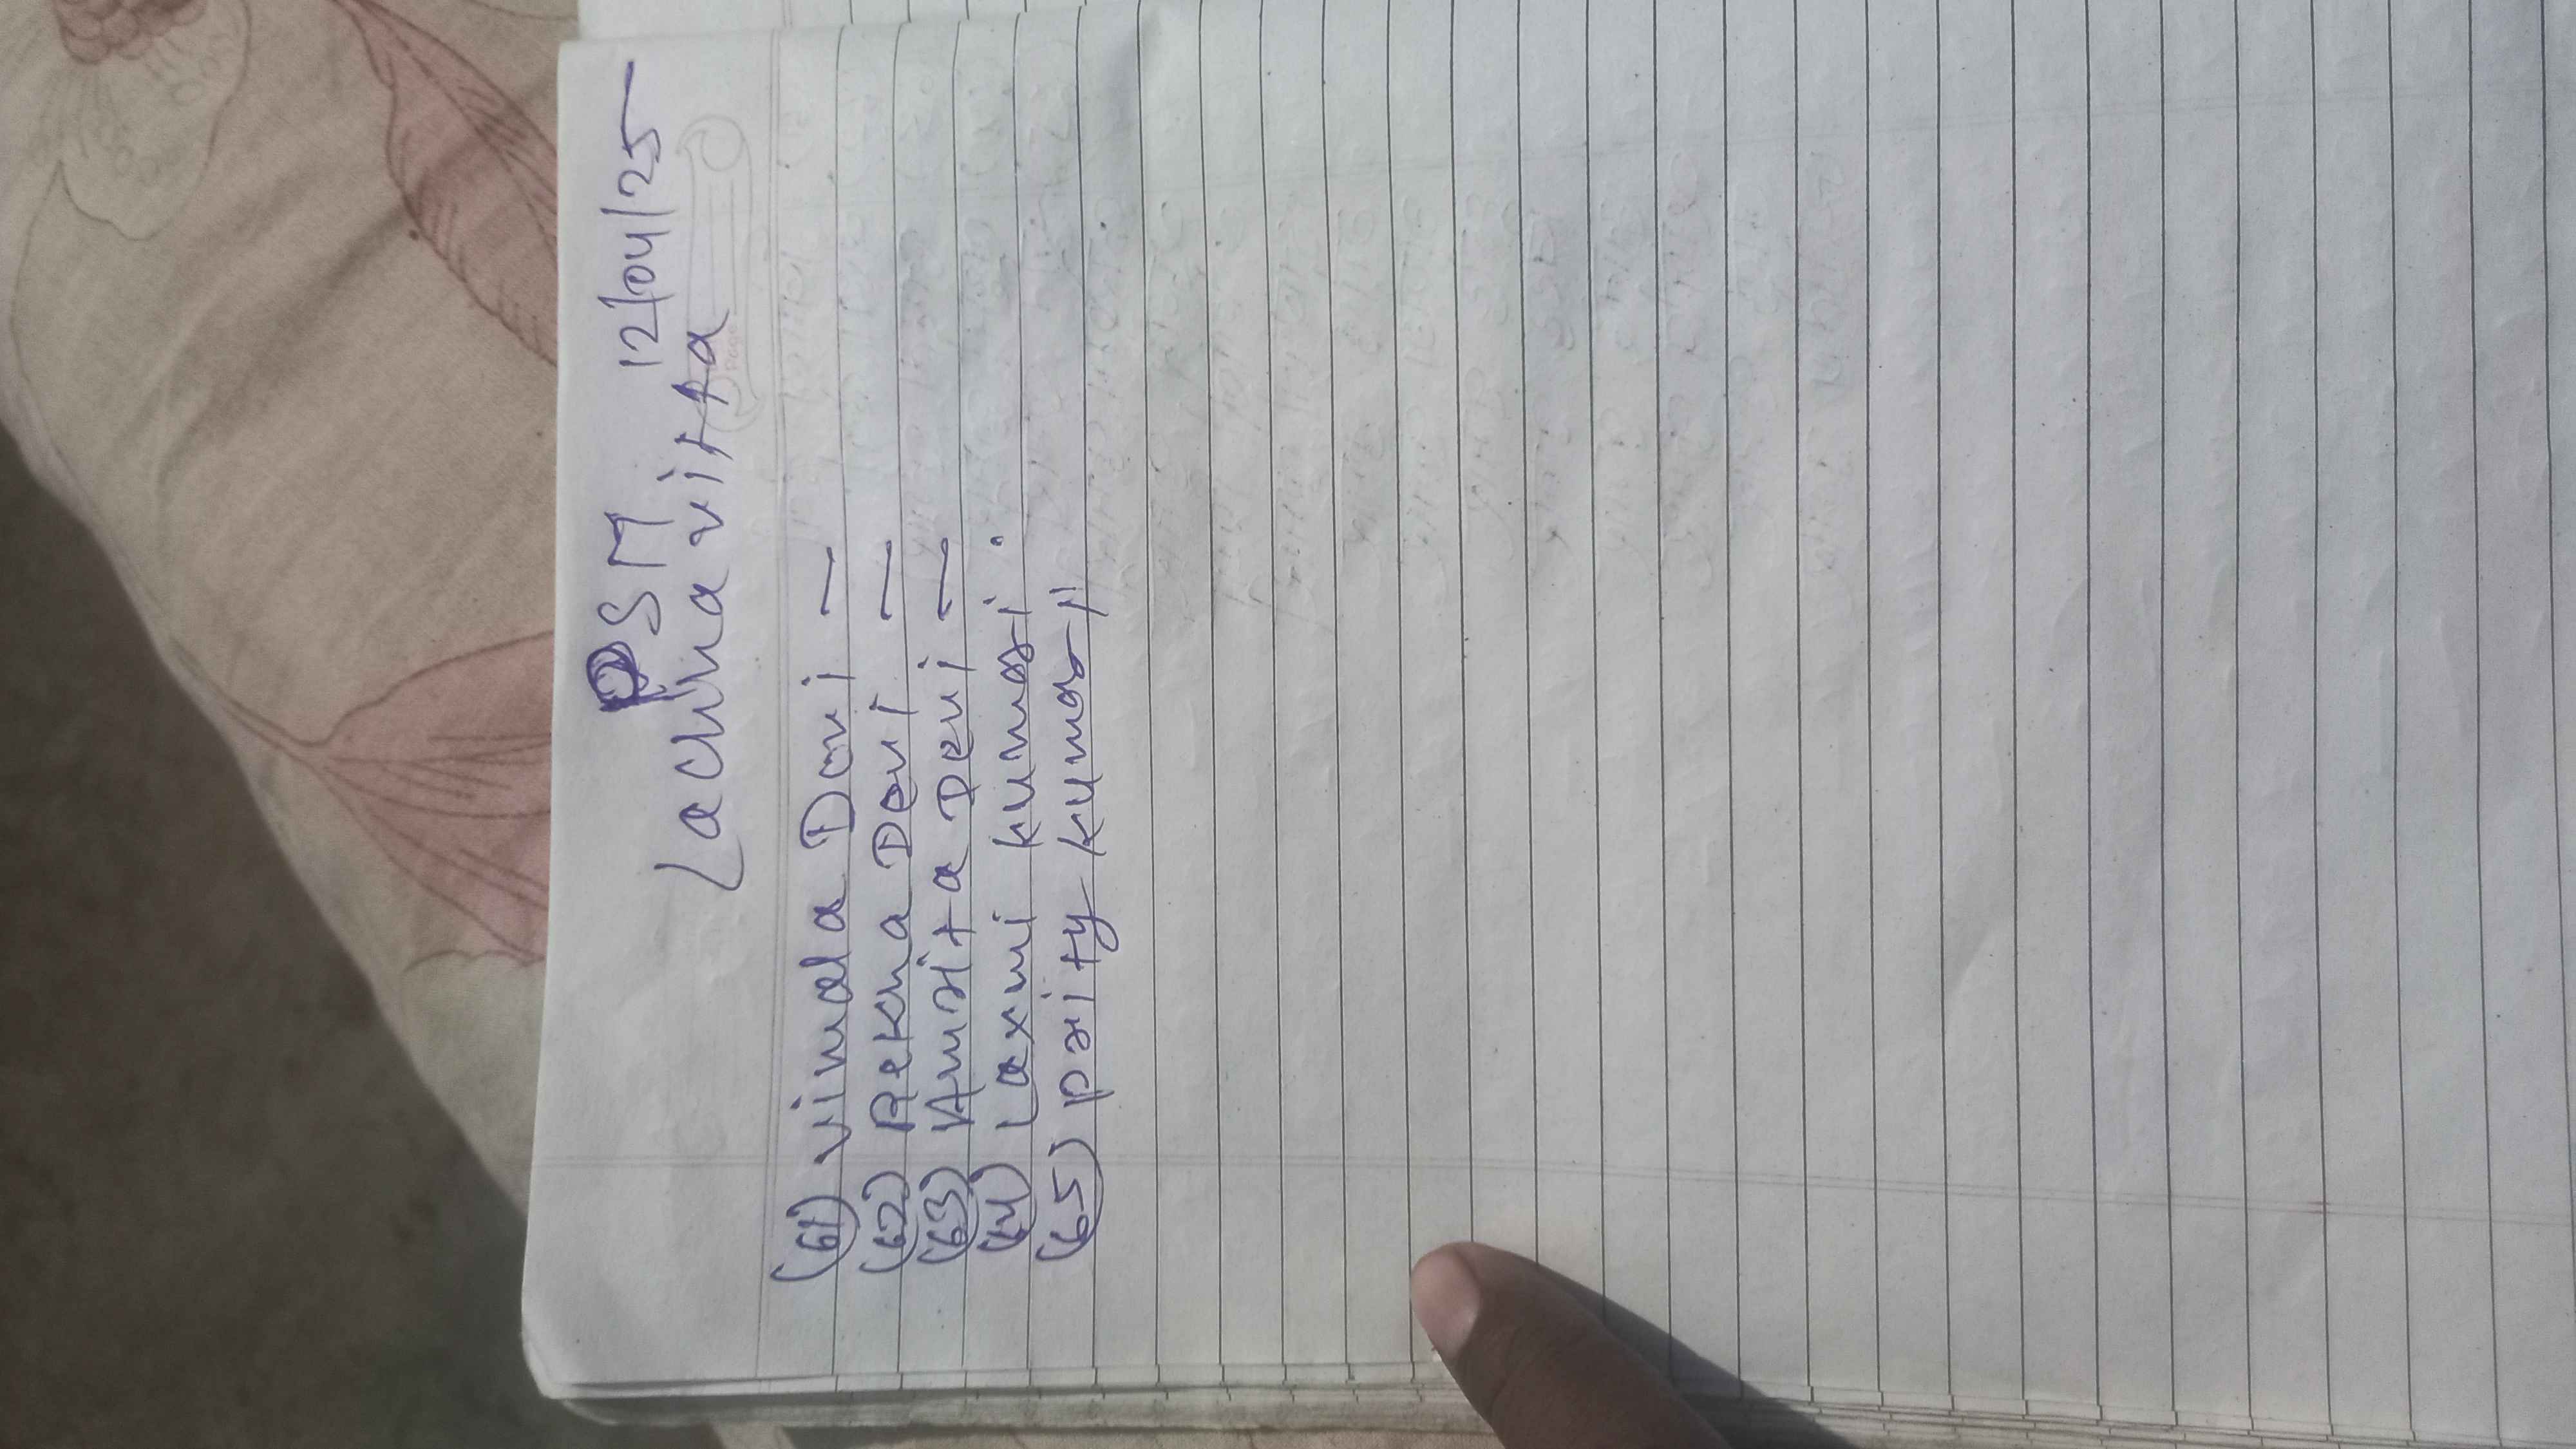 PSM 12/04/25
Lachhavitta
(61) Vimala Devi —
(62) Rekha Devi —
(63) Amrita Devi —
(64) Laxmi kumari .
(65) prity kumari